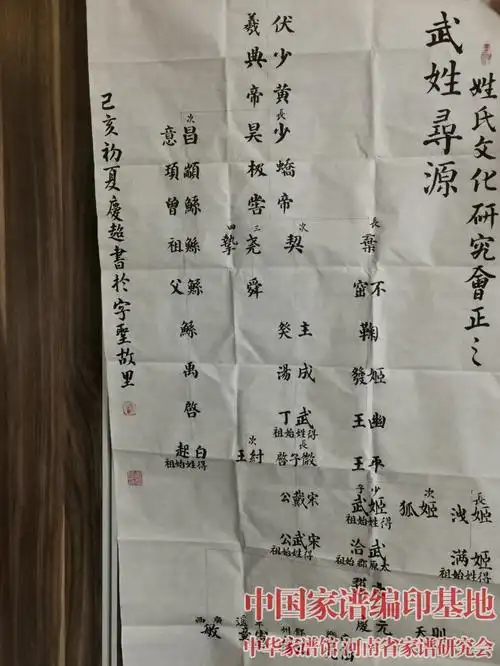 武姓尋源
姓氏文化研究會正之
伏羲
少典
黃帝
長少昊
蟜極
帝嚳
次昌意
顓頊
鯀曾祖
鯀祖
鯀父
鯀
禹
啓
長棄
次契
三堯
四摯
不窋
舜
鞠
主癸
姬發
成湯
幽王
武丁
得姓始祖
平王
長微子啓
次紂王
白起
得姓始祖
少子姬武
得姓始祖
次姬狐
長姬洩
宋戴公
武洽
太原郡始祖
宋武公
得姓始祖
姬滿
得姓始祖
則天
元慶
己亥初夏慶超書於字聖故里
中国家谱编印基地
中华家谱馆 河南省家谱研究会